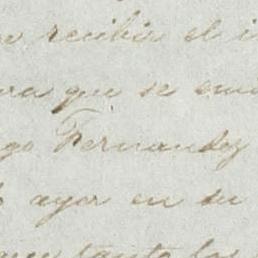 recibir el
que se
go Fernandez
ayer en su
tanto los